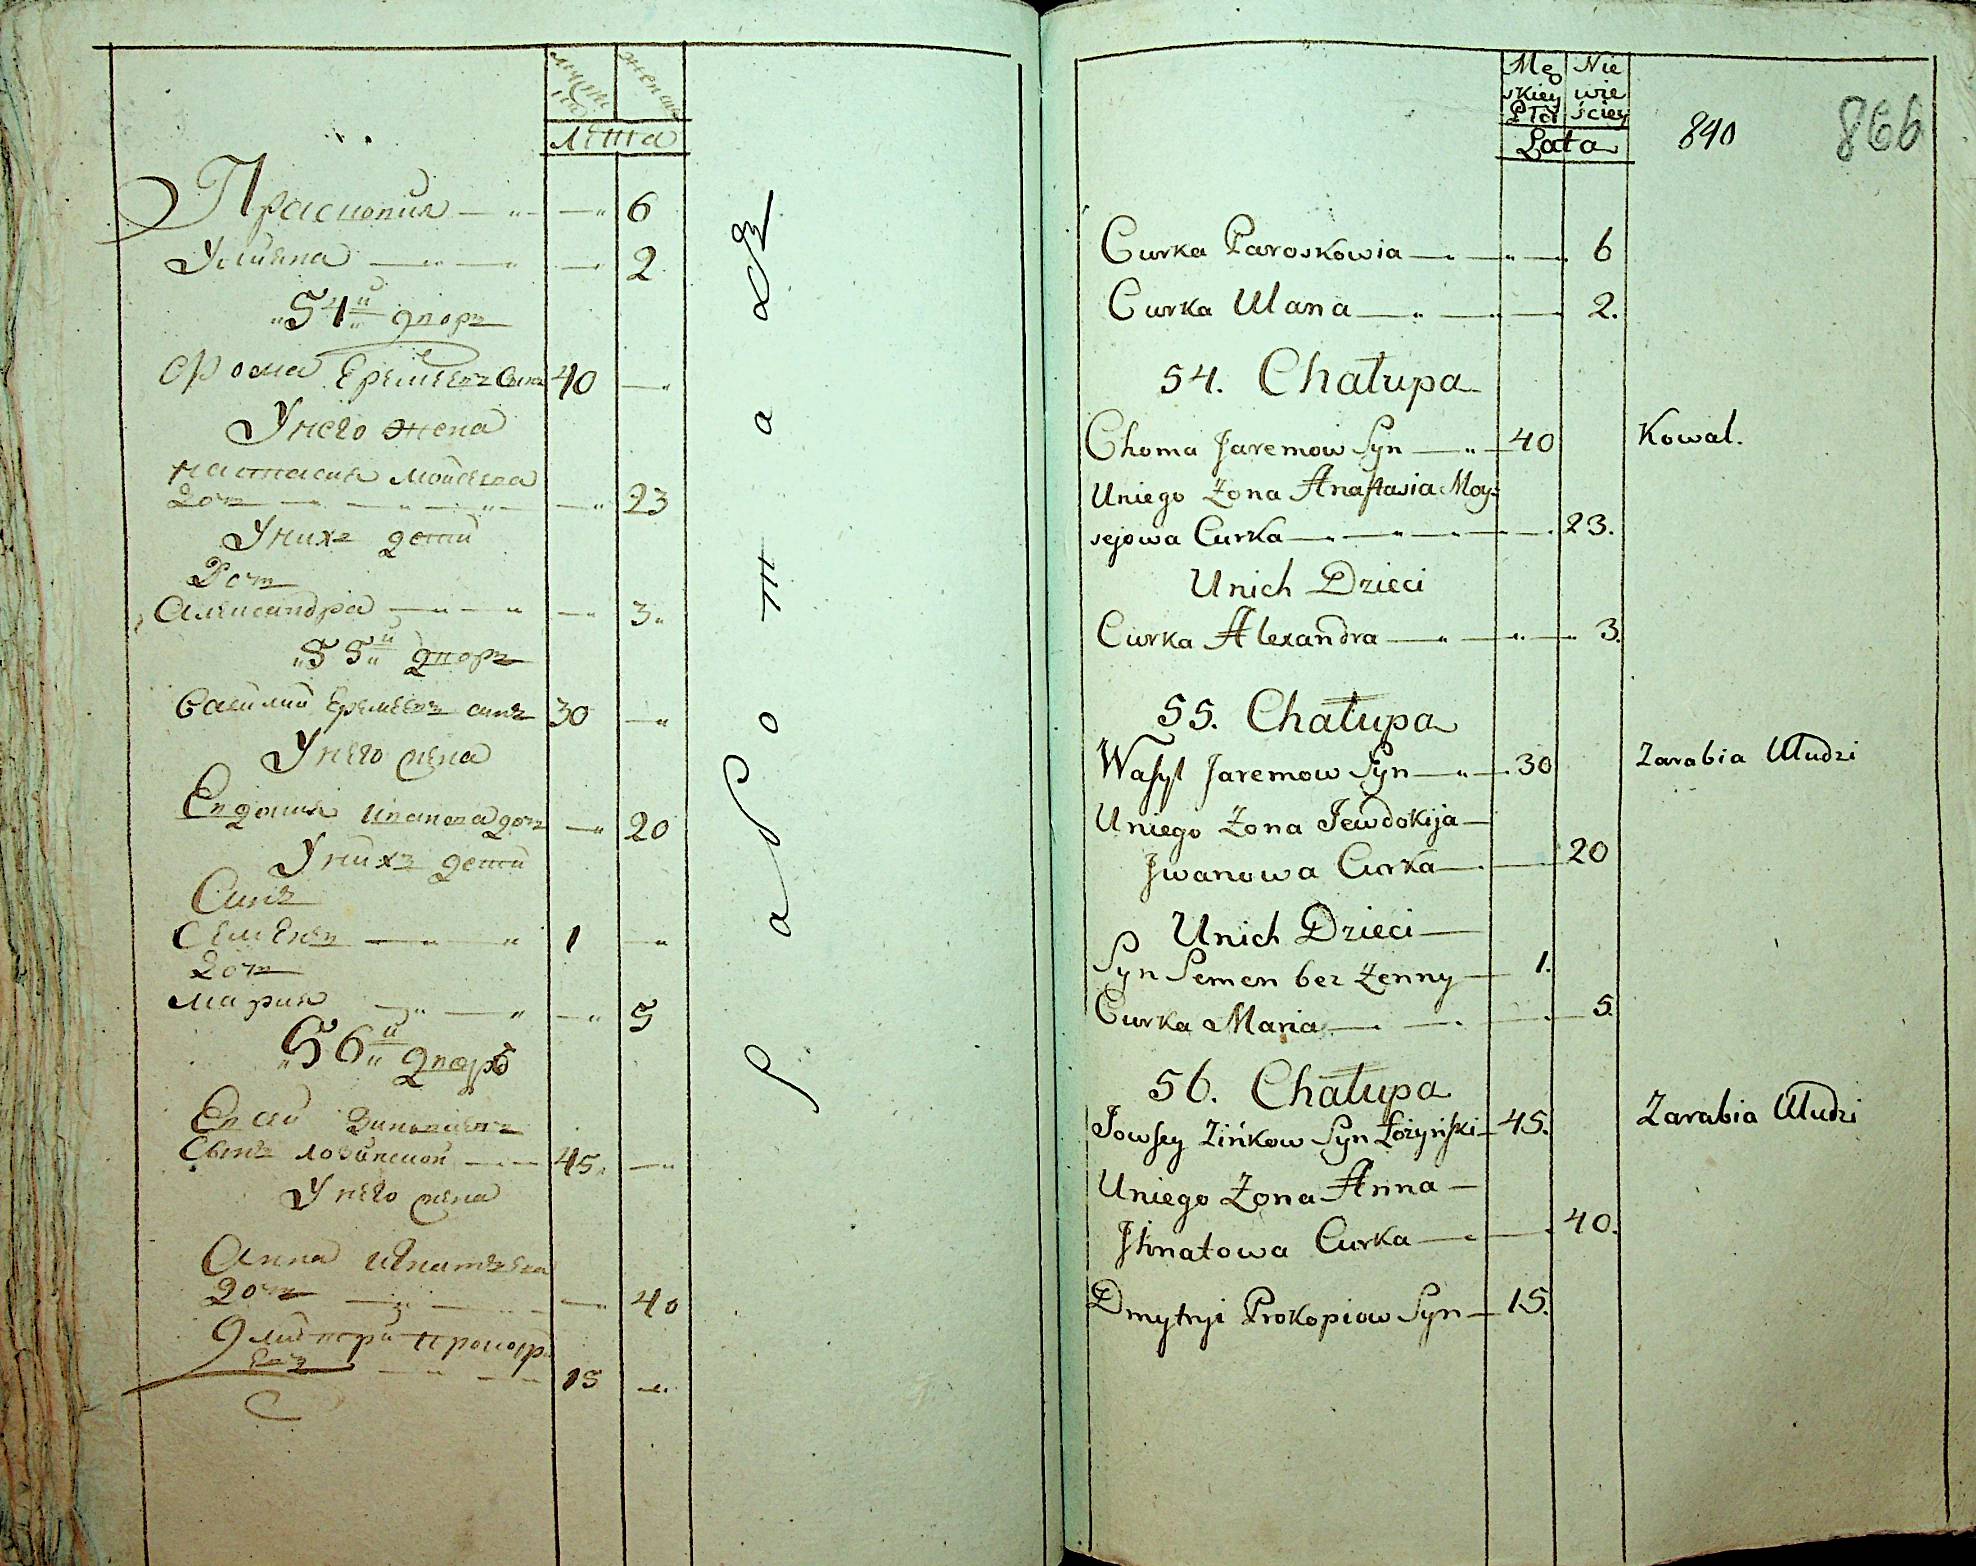 Лѣта
Праскопия 6
Улияна 2
54й дворъ
Фома Еремеевъ Сынъ 40
У него жена
Настасия Мойсеева
дочь 23
У нихъ дети
Дочь
Александра 3
55й дворъ
Василий Еремеевъ сынъ 30
У него жена
Евдокия Иванова дочь 20
У нихъ дети
Синъ
Семенъ 1
дочь
Мария 5
56й дворъ
Евсий Зинковъ
Сынъ 45
У него жена
Анна Игнатьева
дочь 40
Дмитрий Прокофь
евъ 15
Mę Nie
skiey wie
Płci ściey
Lata
840 866
Curka Paroskowia 6
Curka Ulana 2.
54. Chałupa
Choma Jaremow Syn 40 Kowal.
Uniego Żona Anastasia Moy=
sejowa Curka 23.
Unich Dzieci
Curka Alexandra 3.
55. Chałupa
Wasyl Jaremow Syn 30 Zarabia Uludzi
Uniego Żona Jewdokija
Jwanowa Curka 20
Unich Dzieci
Syn Semen bez Żenny 1.
Curka Maria 5.
56. Chałupa
Jowsey Zińkow Syn Łożyński 45. Zarabia Uludzi
Uniego Żona Anna
Jhnatowa Curka 40.
Dmytryi Prokopiow Syn 15.